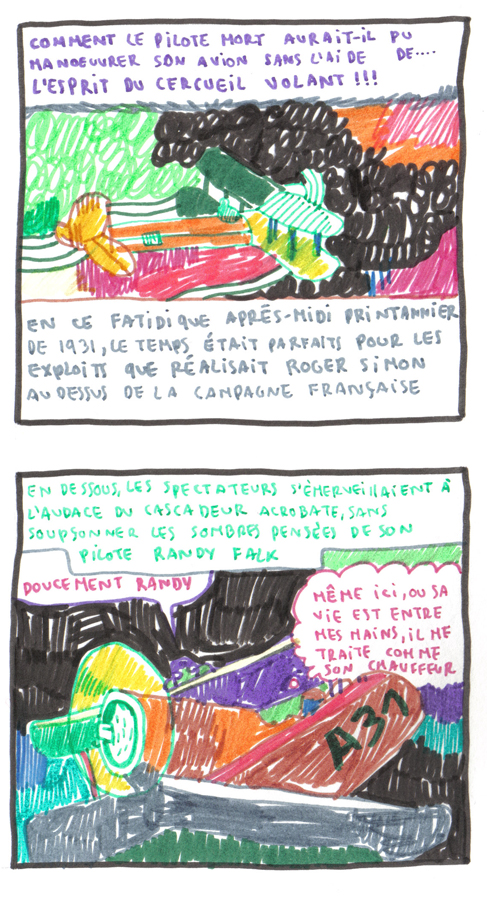 COMMENT LE PILOTE MORT AURAIT-IL PU
MANOEUVRER SON AVION SANS L'AIDE DE....
L'ESPRIT DU CERCUEIL VOLANT !!!
EN CE FATIDIQUE APRÉS-MIDI PRINTANNIER
DE 1931, LE TEMPS ÉTAIT PARFAITS POUR LES
EXPLOITS QUE RÉALISAIT ROGER SIMON
AU DESSUS DE LA CAMPAGNE FRANÇAISE
EN DESSOUS, LES SPECTATEURS S'ÉMERVEILLAIENT À
L'AUDACE DU CASCADEUR ACROBATE, SANS
SOUPSONNER LES SOMBRES PENSÉES DE SON
PILOTE RANDY FALK
DOUCEMENT RANDY
MÊME ICI, OU SA
VIE EST ENTRE
MES MAINS, IL ME
TRAITE COMME
SON CHAUFFEUR
A31